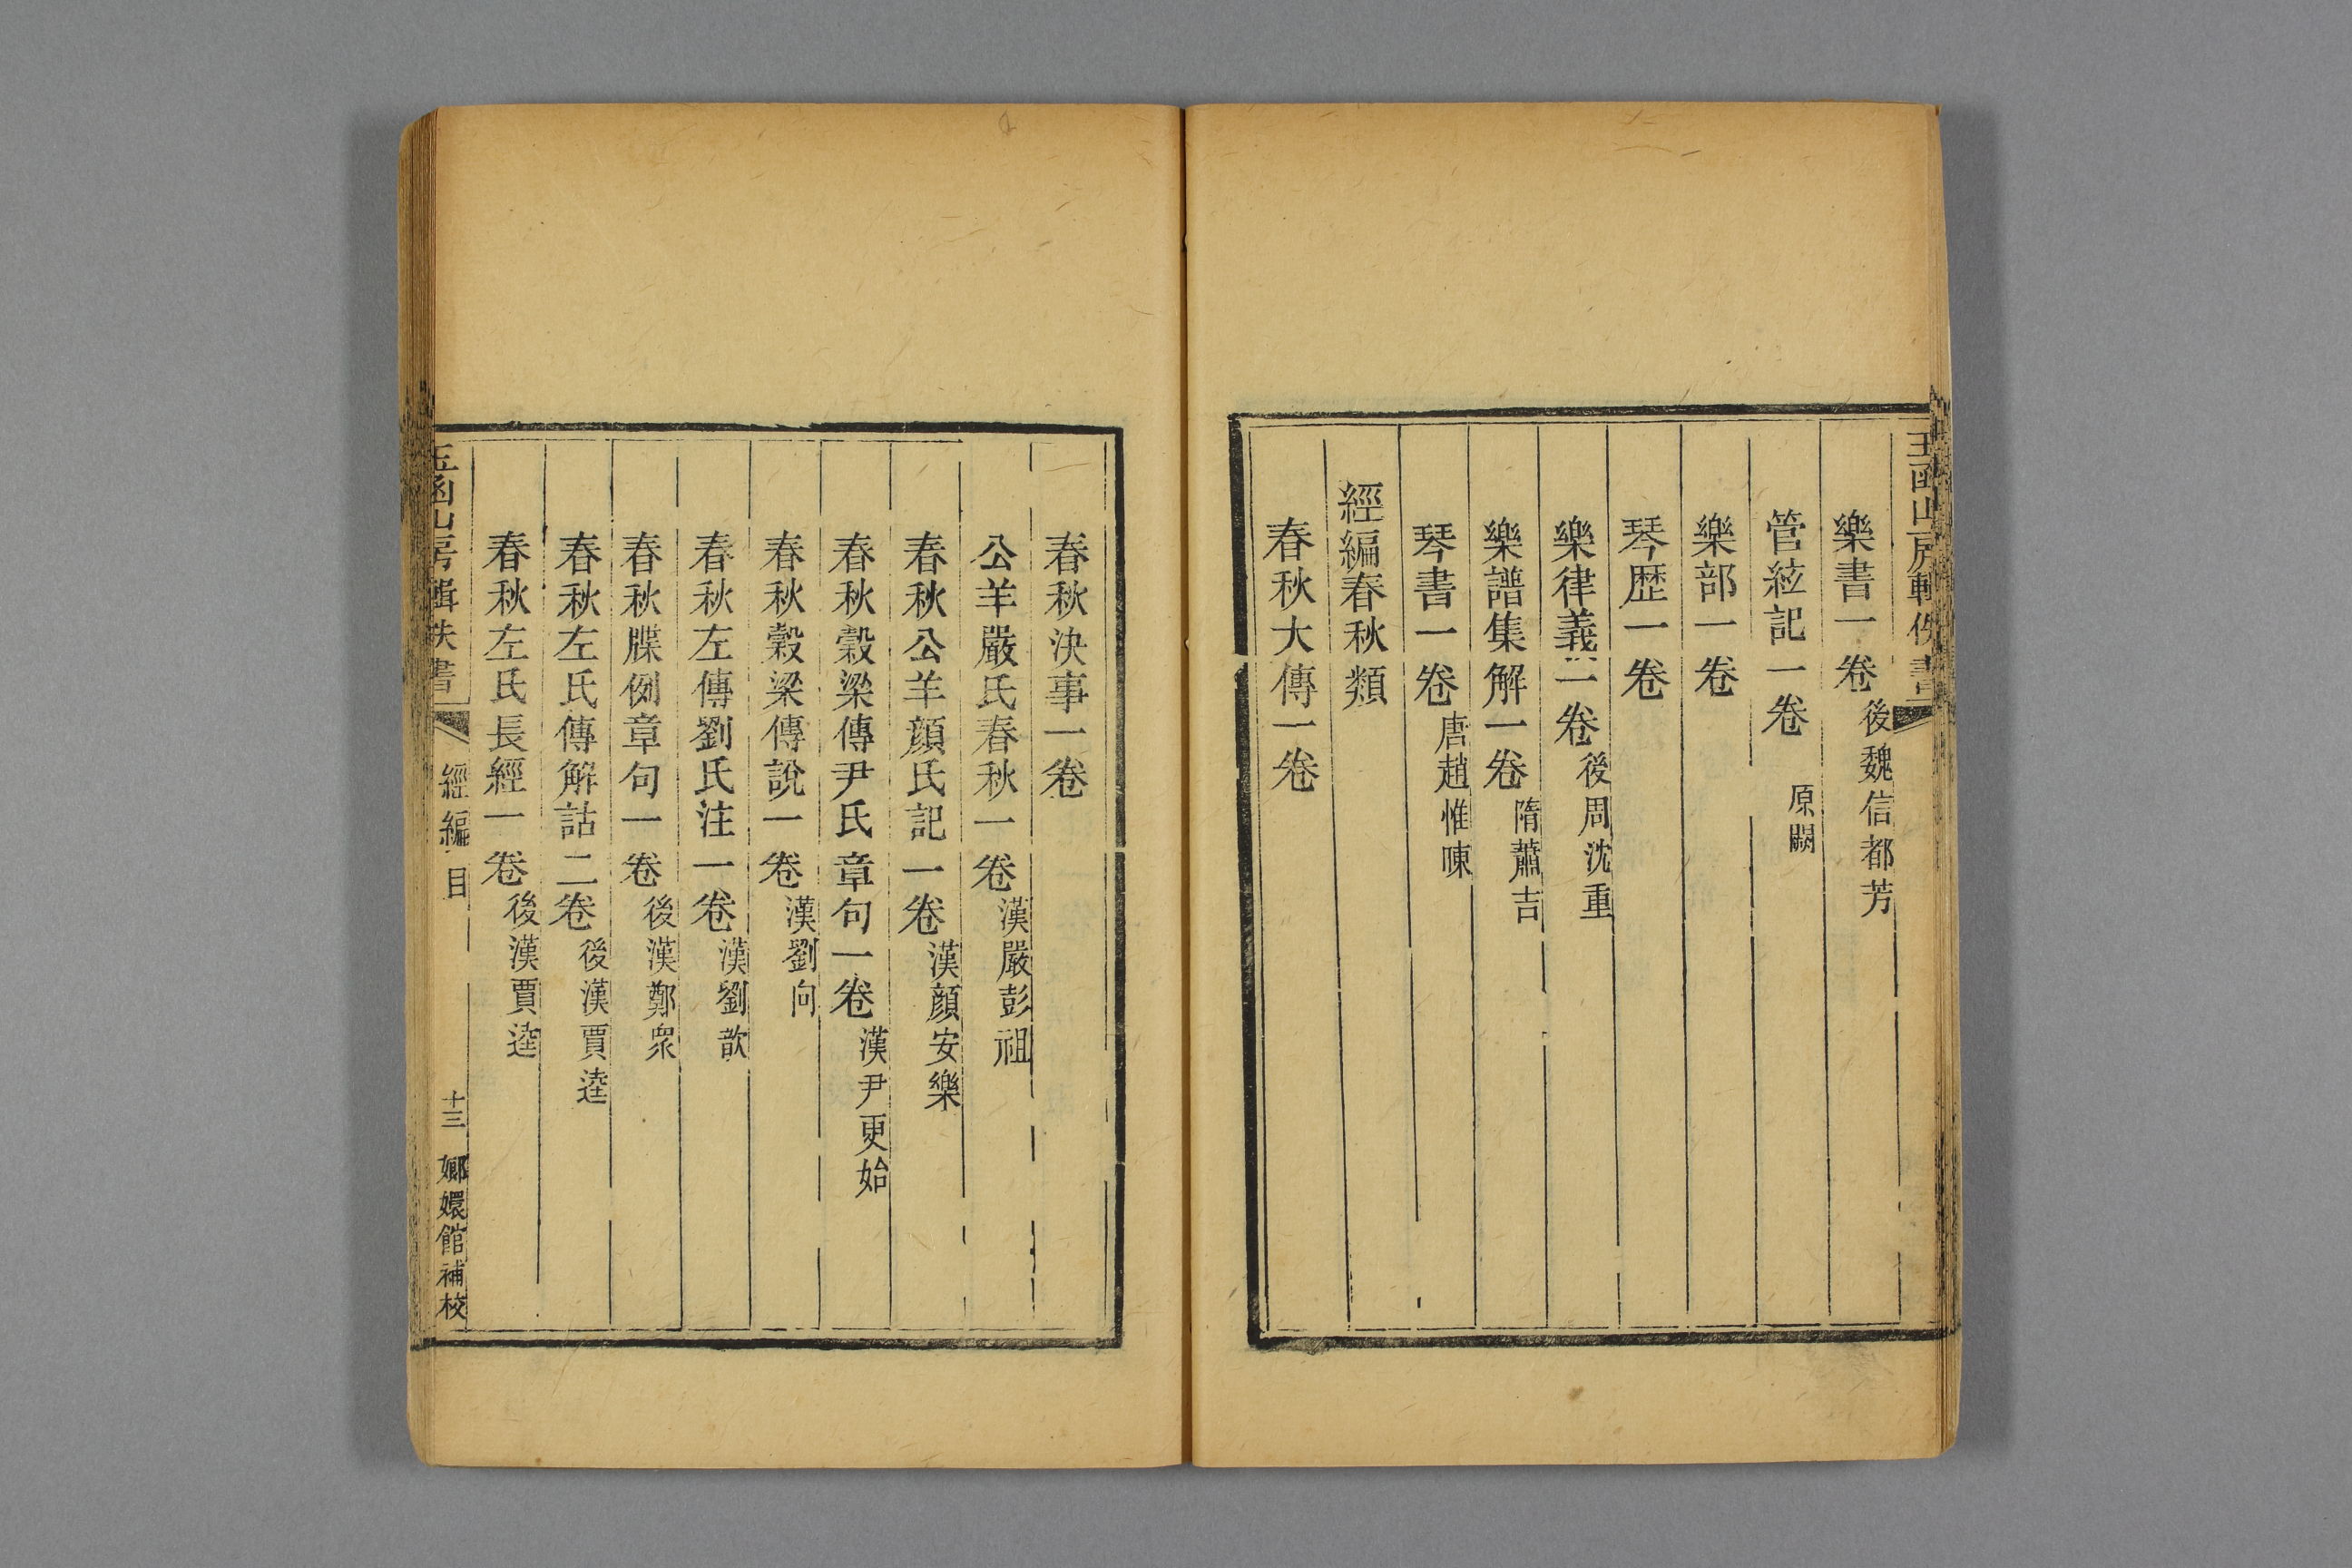 樂書一卷後魏信都芳
管絃記一卷 原闕
樂部一卷
琴歷一卷
樂律義一卷後周沈重
樂譜集解一卷隋蕭吉
琴書一卷唐趙惟暕
經編春秋類
春秋大傳一卷
春秋決事一卷
公羊嚴氏春秋一卷漢嚴彭祖
春秋公羊顏氏記一卷漢顏安樂
春秋穀梁傳尹氏章句一卷漢尹更始
春秋穀梁傳說一卷漢劉向
春秋左傳劉氏注一卷漢劉歆
春秋牒例章句一卷後漢鄭眾
春秋左氏傳解詁二卷後漢賈逵
春秋左氏長經一卷後漢賈逵
玉函山房輯佚書 經編目 十三 嫏嬛館補校